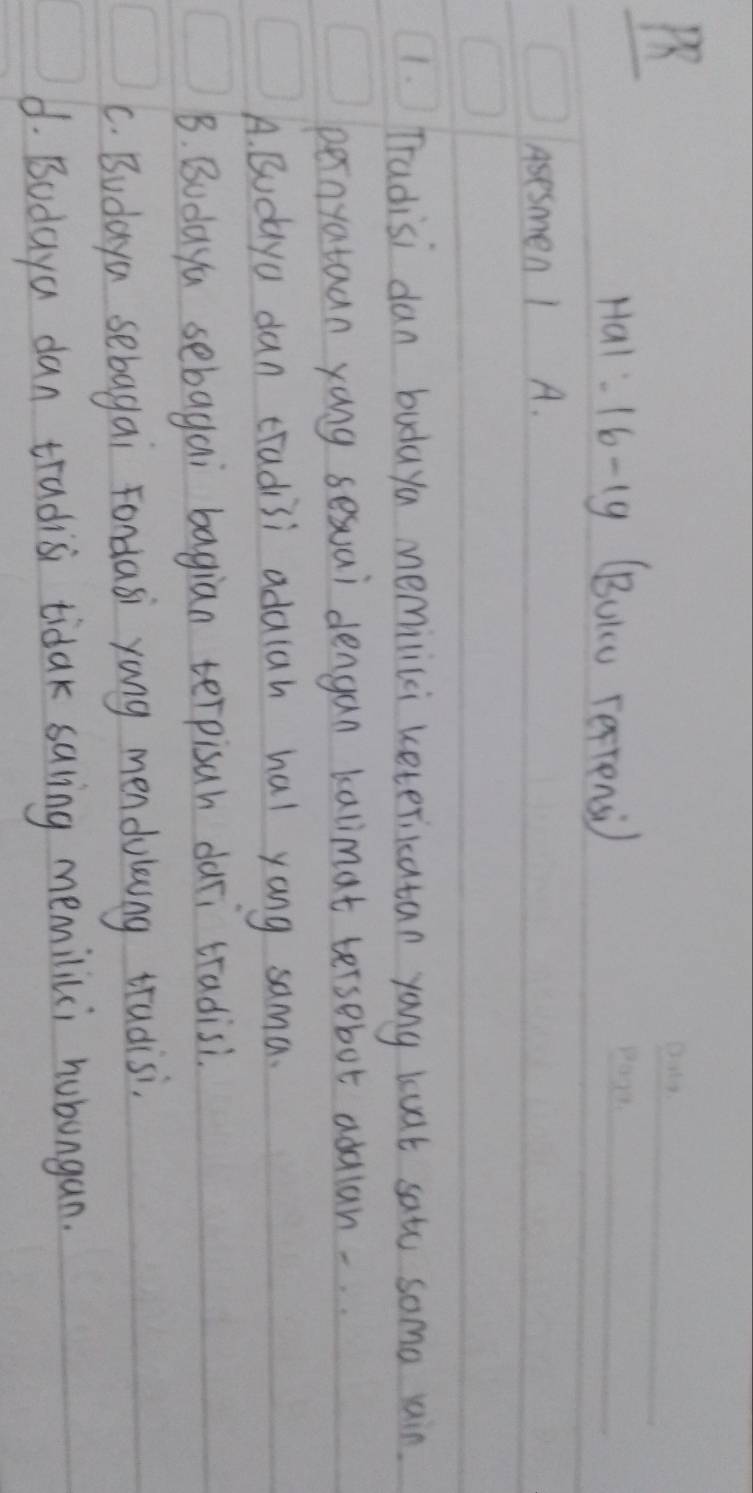 PR
Date
Page
Hal : 16-19 (Buku referensi)
Asesmen 1 A.
1. Tradisi dan budaya memiliki keterikatan yang kuat satu sama lain.
pernyataan yang sesuai dengan kalimat tersebut adalah...
A. Budaya dan tradisi adalah hal yang sama.
B. Budaya sebagai bagian terpisah dari tradisi.
C. Budaya sebagai fondasi yang mendukung tradisi.
d. Budaya dan tradisi tidak saling memiliki hubungan.